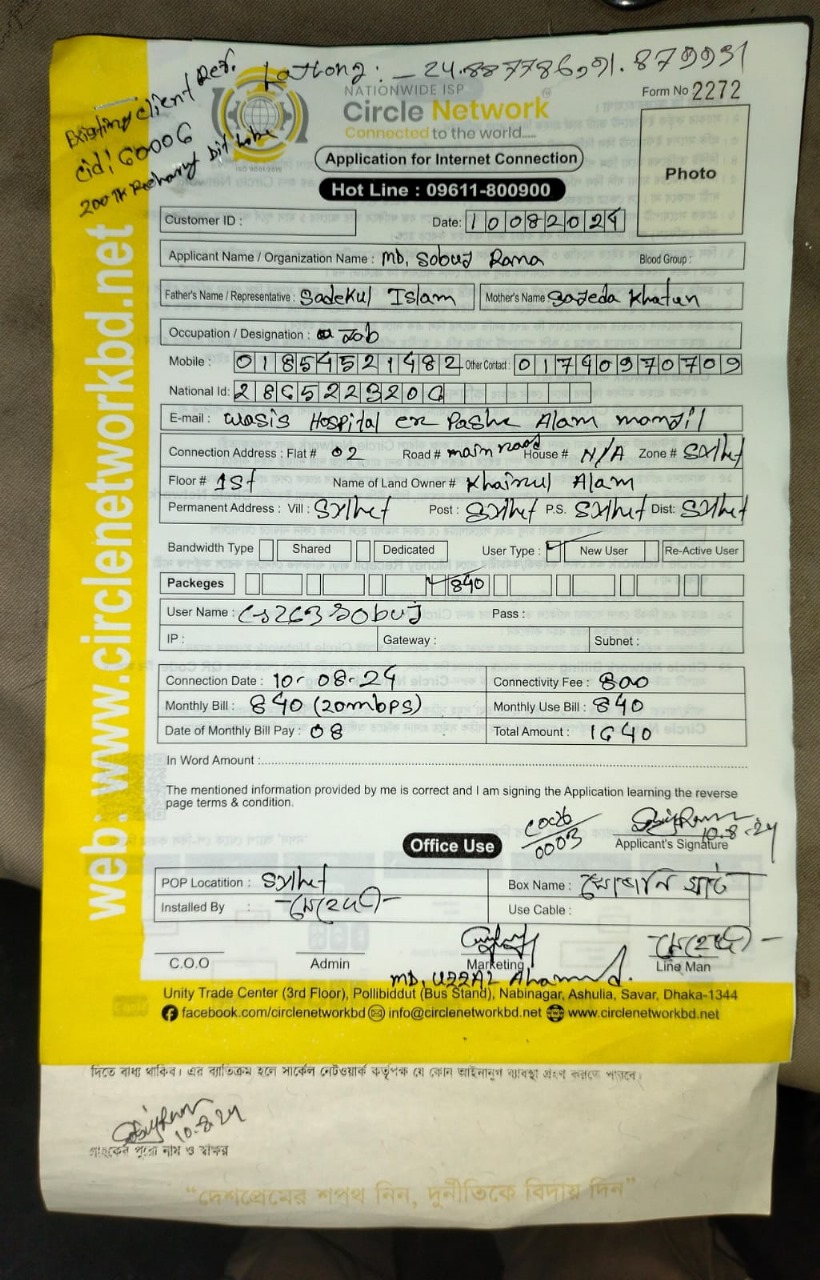 Existing Client Ref.
Cid: 60006
200 Tk Recharg
Lattong: - 24.887786, 91.879931
NATIONWIDE ISP
Circle Network
Connected to the world.....
Form No 2272
Application for Internet Connection
Photo
Hot Line : 09611-800900
Customer ID :
Date: 10082024
Applicant Name / Organization Name : Md, Sobuj Rana Blood Group :
Father's Name / Representative : Sadekul Islam Mother's Name Sajeda Khatun
Occupation / Designation : Job
Mobile : 01854521482 Other Contact : 01740970709
National Id: 2865223206
E-mail : wasis Hospital er Pashe Alam manjil
Connection Address : Flat # 02 Road # main road House # N/A Zone # Sylhet
Floor # 1st Name of Land Owner # Khairul Alam
Permanent Address : Vill : Sylhet Post : Sylhet P.S. Sylhet Dist: Sylhet
Bandwidth Type Shared Dedicated User Type : New User Re-Active User
Packeges 840
User Name : Pass :
IP : Gateway : Subnet :
Connection Date : 10-08-24 Connectivity Fee : 800
Monthly Bill : 840 (20mbps) Monthly Use Bill : 840
Date of Monthly Bill Pay : 08 Total Amount : 1640
In Word Amount :
The mentioned information provided by me is correct and I am signing the Application learning the reverse
page terms & condition.
0003
10.8.24
Office Use
Applicant's Signature
POP Locatition : Sylhet Box Name :
Installed By : মেহেদী Use Cable :
মেহেদী
C.O.O Admin Marketing Line Man
MD, UZZAL Ahammed.
Unity Trade Center (3rd Floor), Pollibiddut (Bus Stand), Nabinagar, Ashulia, Savar, Dhaka-1344
facebook.com/circlenetworkbd info@circlenetworkbd.net www.circlenetworkbd.net
web: www.circlenetworkbd.net
দিতে বাধ্য থাকিব। এর ব্যতিক্রম হলে সার্কেল নেটওয়ার্ক কর্তৃপক্ষ যে কোন আইনানুগ ব্যবস্থা গ্রহণ করতে পারবে।
10.8.24
গ্রাহকের পুরো নাম ও স্বাক্ষর
“দেশপ্রেমের শপথ নিন, দুর্নীতিকে বিদায় দিন”